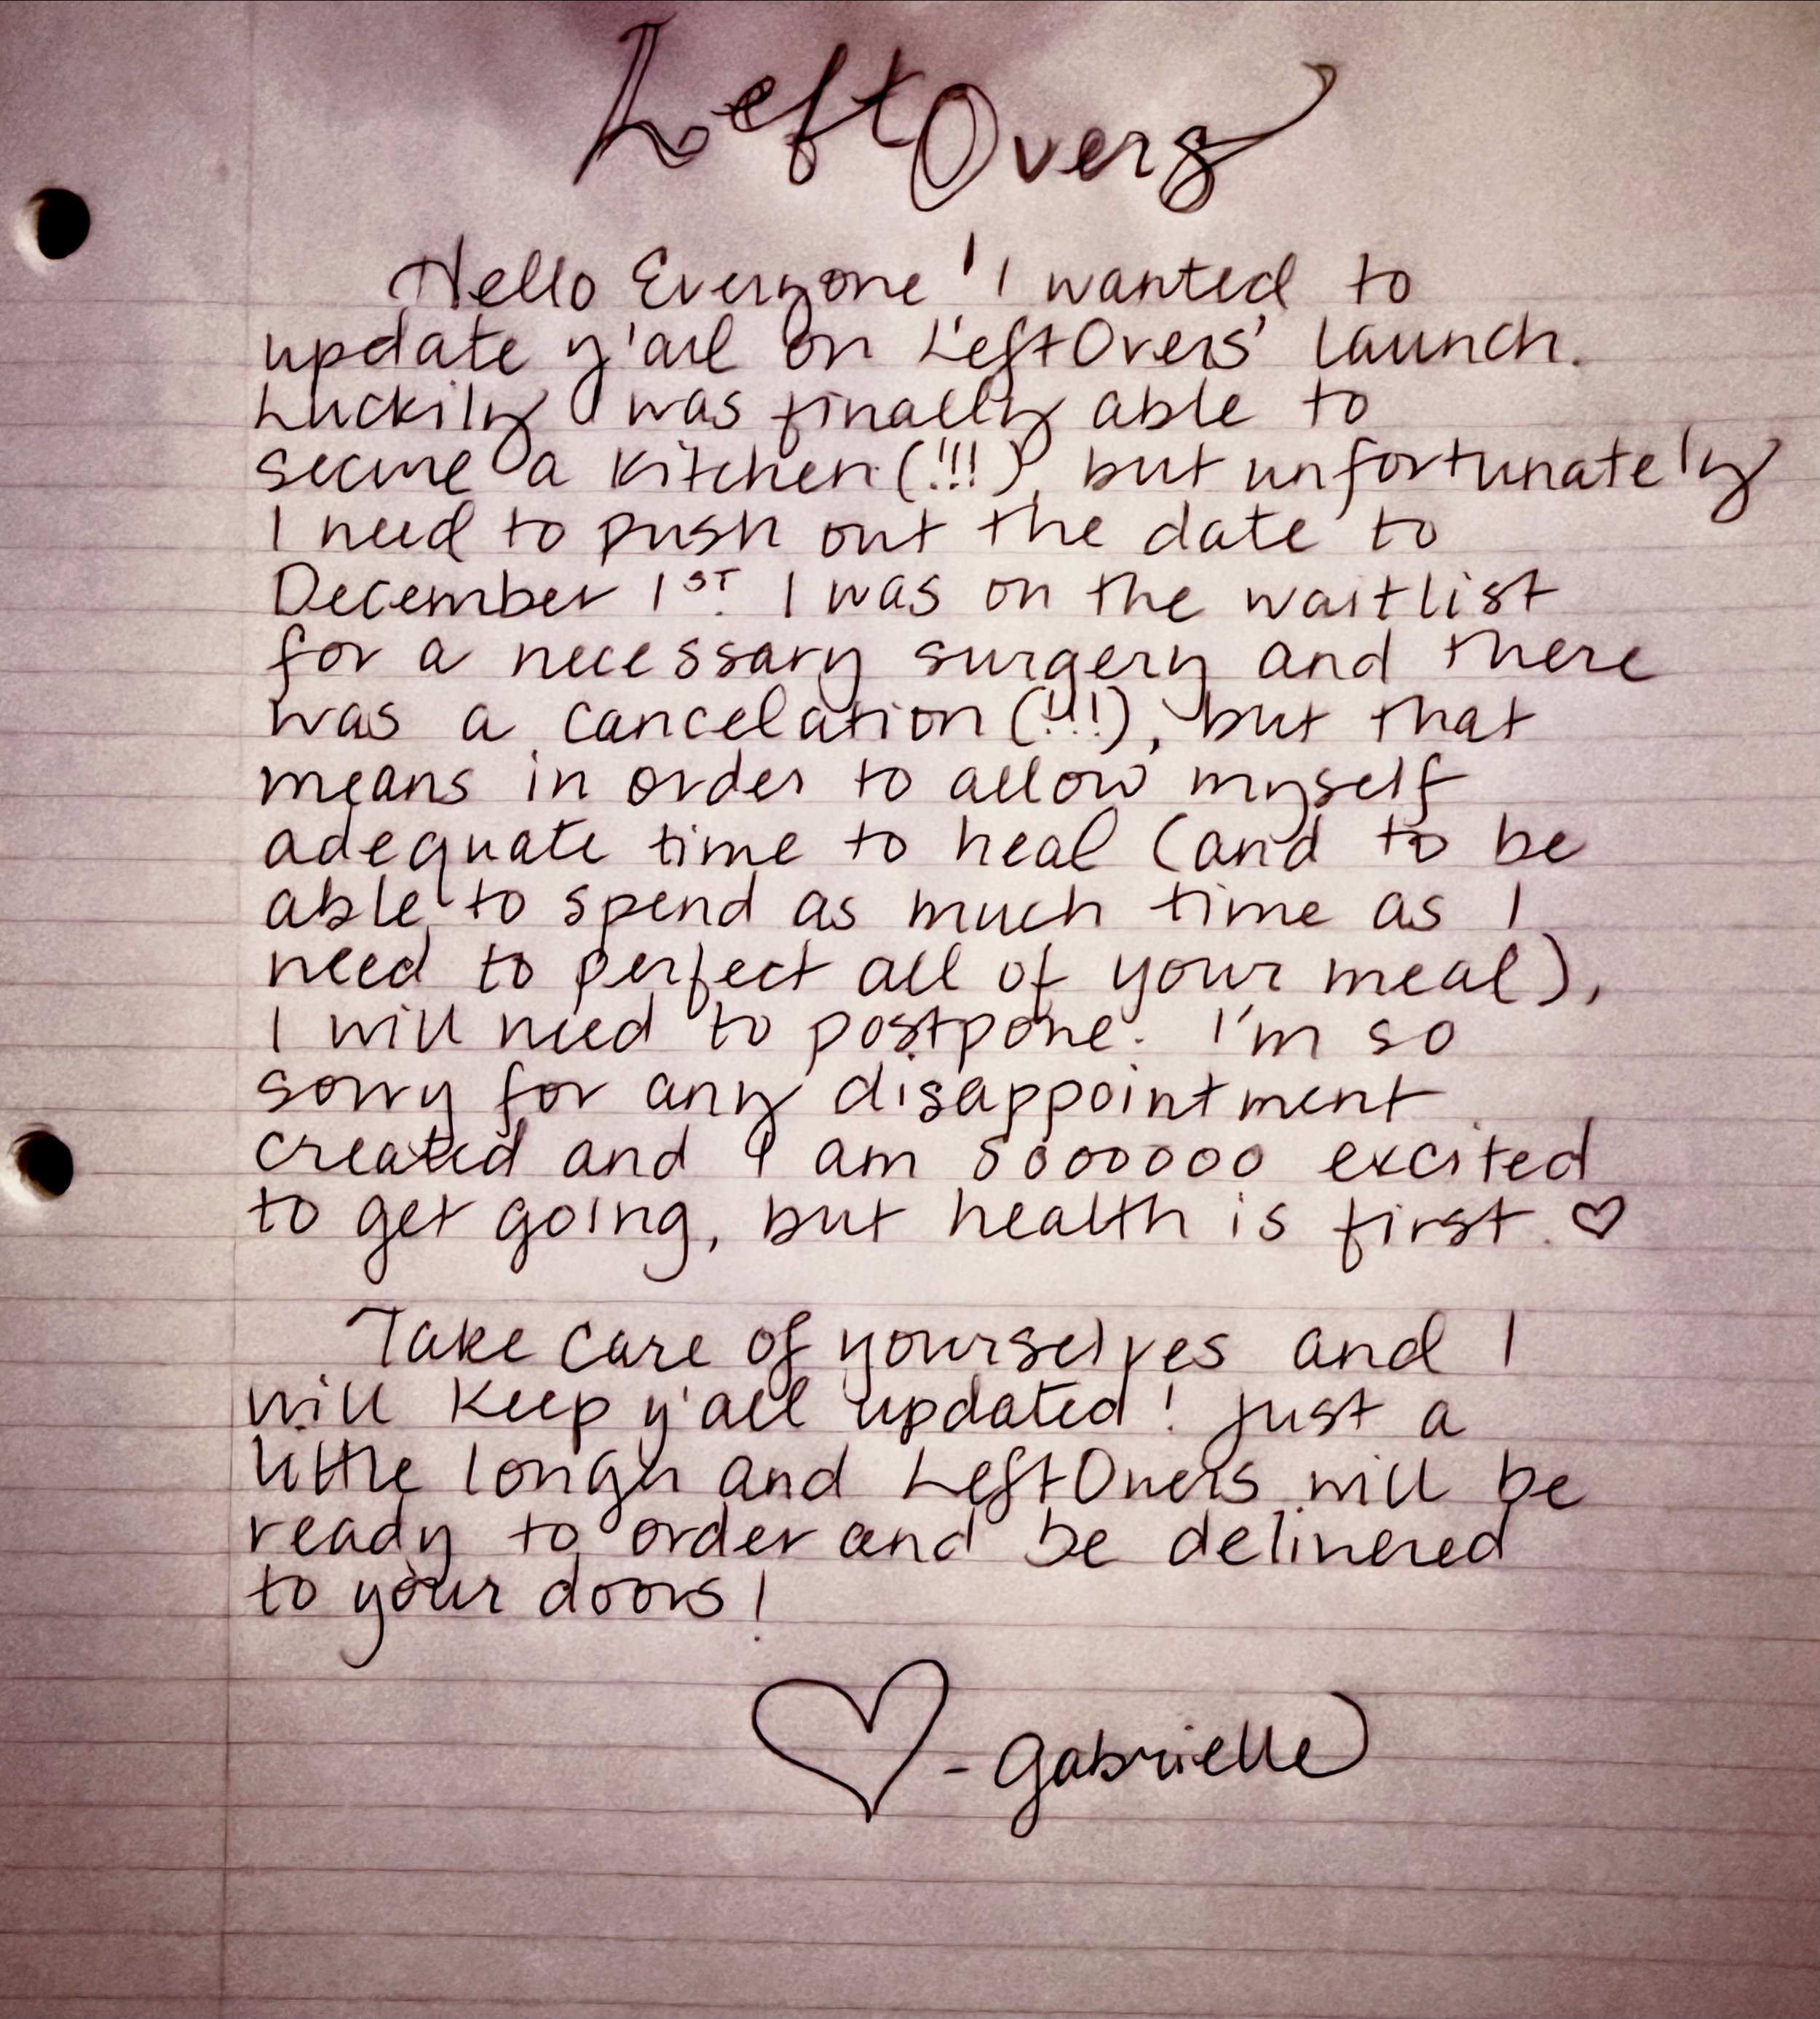 LeftOvers
Hello Everyone! I wanted to
update y'all on LeftOvers' launch.
Luckily I was finally able to
secure a kitchen (!!!), but unfortunately
I need to push out the date to
December 1ST. I was on the waitlist
for a necessary surgery and there
was a cancelation (!!!), but that
means in order to allow myself
adequate time to heal (and to be
able to spend as much time as I
need to perfect all of your meal),
I will need to postpone. I'm so
sorry for any disappointment
created and I am soooooo excited
to get going, but health is first. ♡
Take care of yourselves and I
will keep y'all updated! Just a
little longer and LeftOvers will be
ready to order and be delivered
to your doors!
♡ - Gabrielle